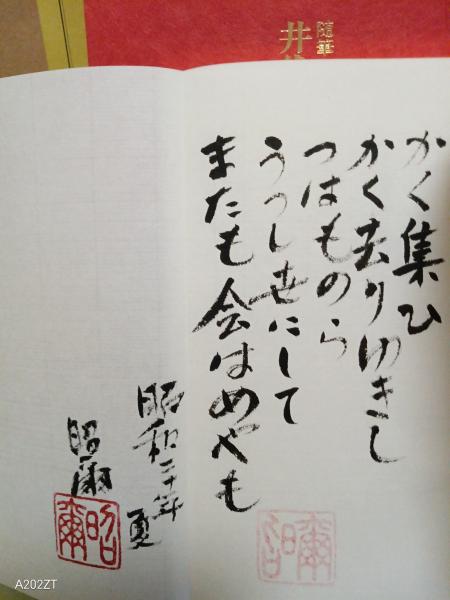 かく集ひ
かく去りゆきし
つはものら
うつし世にして
またも会はめやも
昭和二十年 夏
昭爾
昭爾
随筆
井
A202ZT